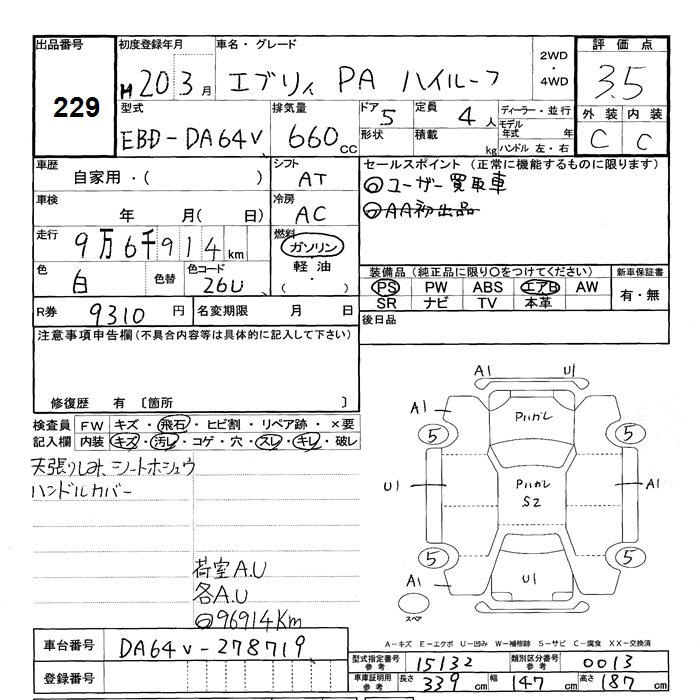 出品番号 初度登録年月 車名・グレード 2WD・4WD 評価点
229 H20 3月 エブリィ PA ハイルーフ 3.5
型式 排気量 ドア 5 定員 4人 ディーラー・並行 外装 内装
EBD-DA64V 660cc 形状 積載 kg モデル年式 年 C C
ハンドル 左・右
車歴 シフト セールスポイント (正常に機能するものに限ります)
自家用・( ) AT ◎ユーザー買取車
車検 冷房 ◎AA初出品
年 月( 日) AC
走行 燃料
9万6千914km ガソリン
色 色替 色コード 軽油 装備品(純正品に限り○をつけてください) 新車保証書
白 26U ・( ) PS PW ABS エアB AW 有・無
SR ナビ TV 本革
R券 9310円 名変期限 月 日 後日品
注意事項申告欄(不具合内容等は具体的に記入して下さい)
修復歴 有 〔箇所 〕
検査員 FW キズ・飛石・ヒビ割・リペア跡・×要
記入欄 内装 キズ・汚レ・コゲ・穴・スレ・キレ・破レ
天張りしみ、シートホシュウ
ハンドルカバー
荷室A.U
各A.U
◎96914Km
A1 U1
A1 Pハガレ
5 5
U1 Pハガレ A1
S2
5 5
A1 U1
スペア
A-キズ E-エクボ U-凹み W-補修跡 S-サビ C-腐食 XX-交換済
車台番号 DA64V-278719
登録番号
型式指定番号 参考 15132 類別区分番号 参考 0013
車庫証明用 参考 長さ 339cm 幅 147cm 高さ 187cm